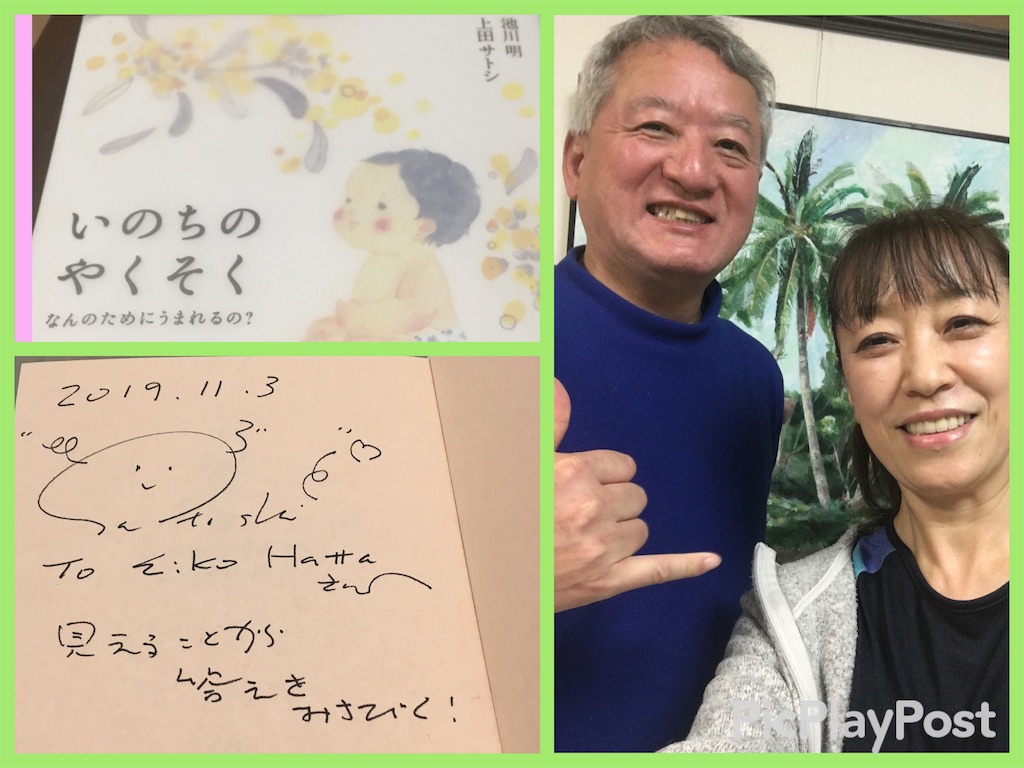 池川明
上田サトシ
いのちの
やくそく
なんのためにうまれるの?
2019.11.3
Satoshi
To Eiko Hatta
さん
見えることから
答えを
みちびく!
PicPlayPost